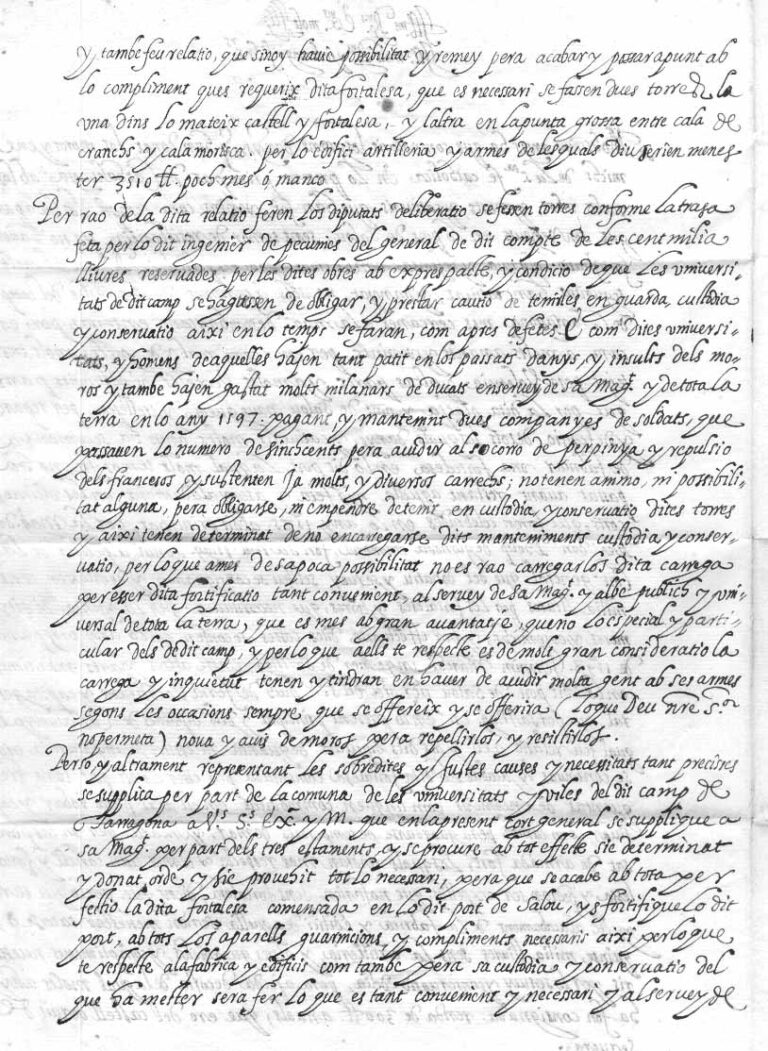 y tambe feu relatio, que sinoy havie possibilitat y remey pera acabar y posar apunt ab
lo compliment ques requerix dita fortalesa, que es necessari se fassen dues torres la
una dins lo mateix castell y fortalesa, y laltra en la punta grossa entre cala de
cranchs y cala morisca. per lo edifici artilleria y armes de les quals diu serien menes
ter 3510 ll. poch mes ó manco
Per rao de la dita relatio feren los diputats deliberatio se fessen torres conforme la trasa
feta per lo dit ingenier de pecunies del general de dit compte de les cent milia
lliures reservades, per les dites obres ab exprespacte, y condicio de que les universi-
tats de dit camp se haguessen de obligar, y prestar cautio de tenirles en guarda, custodia
y conservatio aixi en lo temps se faran, com apres de fetes E com dites universi-
tats, y homens de aquelles hajen tant patit en los passats danys, y insults dels mo-
ros y tambe hajen gastat molts milanars de ducats en servey de sa Mag.t y de tota la
terra en lo any 1597. pagant, y mantenint dues companyes de soldats, que
passaven lo numero de sinchcents pera acudir al socorro de perpinya y repulsio
dels francesos y sustenten ja molts, y diversos carrechs; no tenen animo, ni possibili-
tat alguna, pera obligarse, ni empendre de tenir, en custodia, y conservatio dites torres
y aixi tenen determinat de no encarregarse dits manteniments custodia y conser-
vatio, per lo que ames de sa poca possibilitat no es rao carregarlos dita carrega
per esser dita fortificatio tant convenient, al servey de sa Mag.t y al be publich y uni-
versal de tota la terra, que es mes ab gran avantatje, que no lo especial y parti-
cular dels de dit camp, y per lo que a ells te respecte es de molt gran consideratio la
carrega y inquietut tenen y tindran en haver de acudir molta gent ab ses armes
segons les occasions sempre que se offereix y se offerira (lo que Deu nre S.or
no permeta) nova y avis de moros pera repellirlos, y resistirlos.
Perso, y altrament representant les sobredites y justes causes y necessitats tant precises
se supplica per part de la comuna de les universitats y viles del dit camp de
Tarragona a V.s S.s Ex.a y M. que en la present cort general se supplique a
sa Mag.t per part dels tres estaments, y se procure ab tot effecte sie determinat
y donat, orde, y sie provehit tot lo necessari, pera que se acabe ab tota per
fectio la dita fortalesa comensada en lo dit port de Salou, y s fortifique lo dit
port, ab tots los aparells guarnicions, y compliments necessaris aixi per lo que
te respecte a la fabrica y edificis com tambe pera sa custodia y conservatio del
que ha mester sera fer lo que es tant convenient y necessari y al servey de